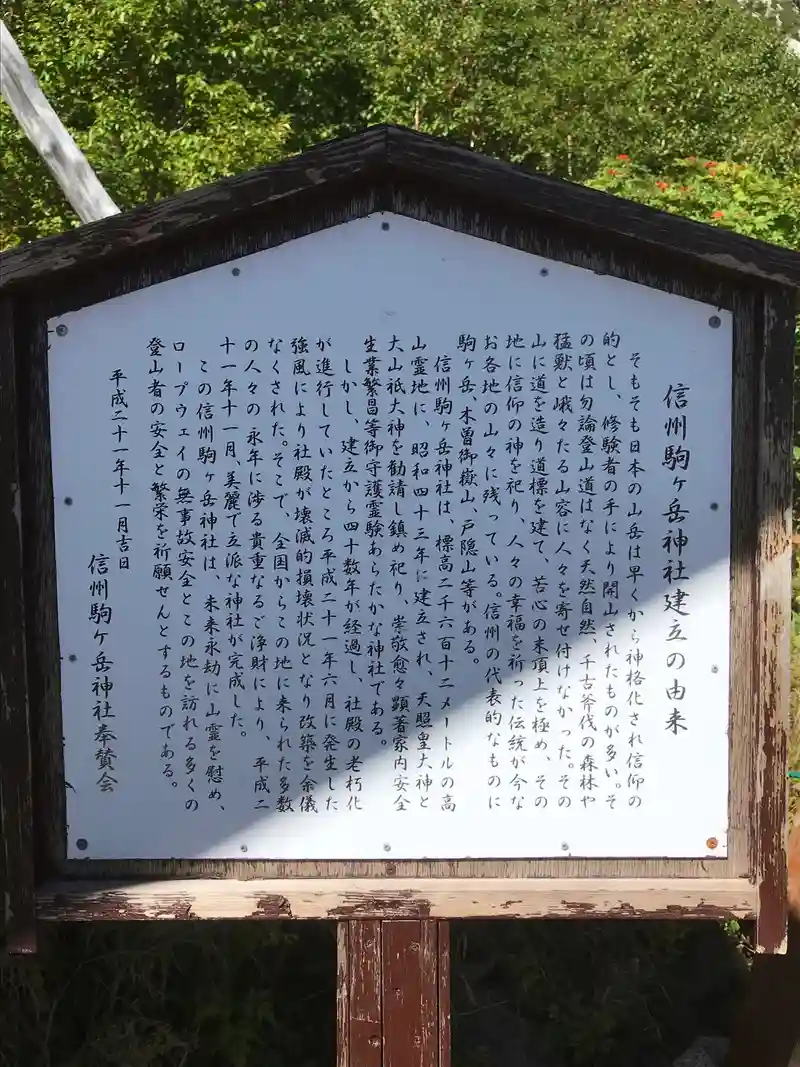 信州駒ヶ岳神社建立の由来
そもそも日本の山岳は早くから神格化され信仰の
的とし、修験者の手により開山されたものが多い。そ
の頃は勿論登山道はなく天然自然、千古斧伐の森林や
猛獣と峨々たる山容に人々を寄せ付けなかった。その
山に道を造り道標を建て、苦心の末頂上を極め、その
地に信仰の神を祀り、人々の幸福を祈った伝統が今な
お各地の山々に残っている。信州の代表的なものに
駒ヶ岳、木曽御嶽山、戸隠山等がある。
信州駒ヶ岳神社は、標高二千六百十二メートルの高
山霊地に、昭和四十三年に建立され、天照皇大神と
大山祇大神を勧請し鎮め祀り、崇敬愈々顕著家内安全
生業繁昌等御守護霊験あらたかな神社である。
しかし、建立から四十数年が経過し、社殿の老朽化
が進行していたところ平成二十一年六月に発生した
強風により社殿が壊滅的損壊状況となり改築を余儀
なくされた。そこで、全国からこの地に来られた多数
の人々の永年に渉る貴重なるご浄財により、平成二
十一年十一月、美麗で立派な神社が完成した。
この信州駒ヶ岳神社は、未来永劫に山霊を慰め、
ロープウェイの無事故安全とこの地を訪れる多くの
登山者の安全と繁栄を祈願せんとするものである。
平成二十一年十一月吉日
信州駒ヶ岳神社奉賛会